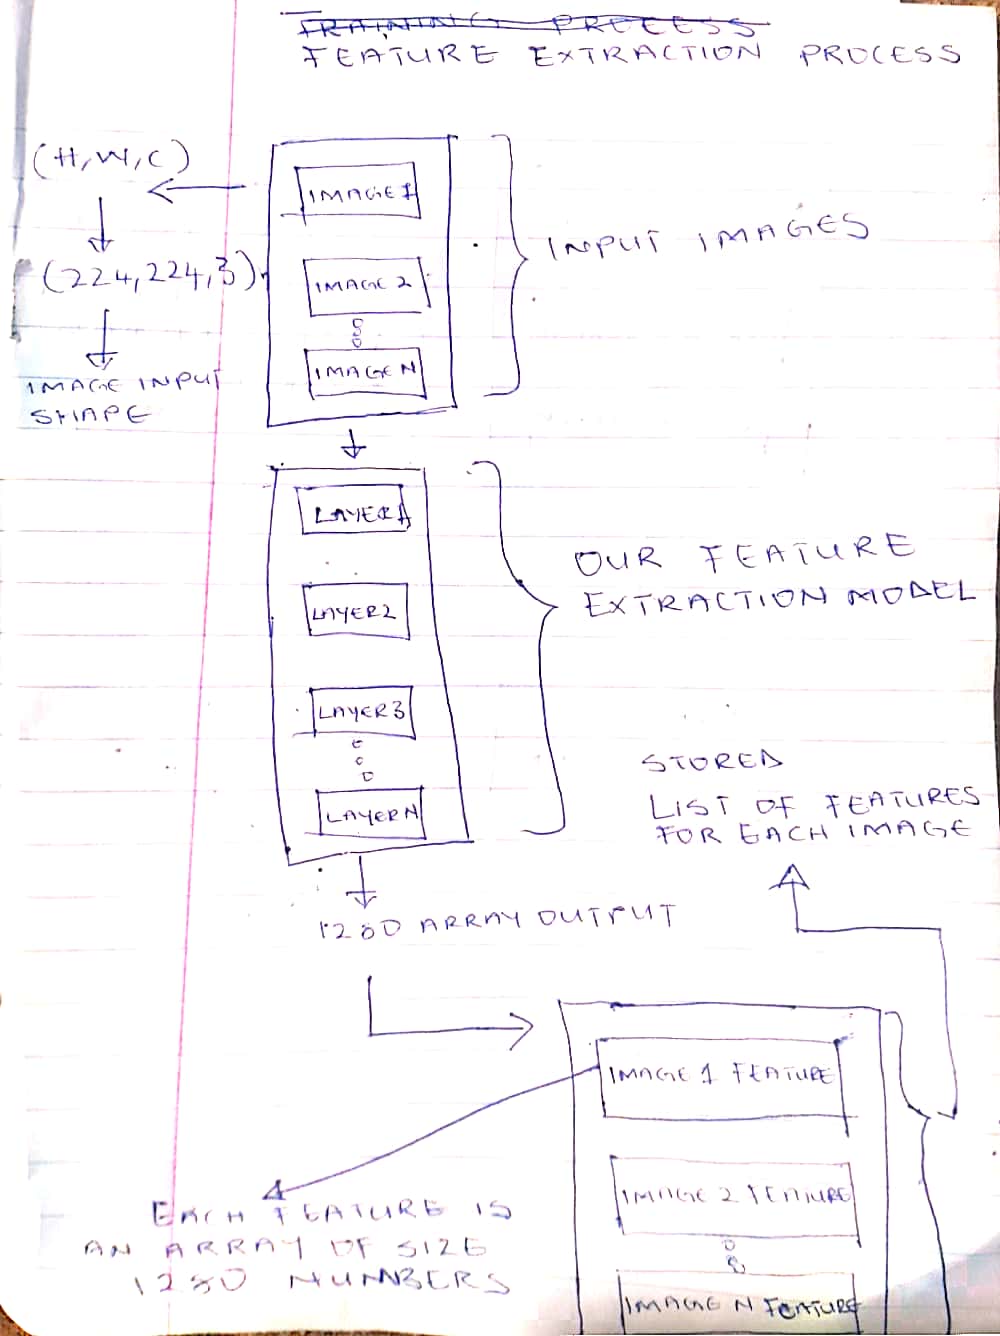 TRAINING PROCESS
FEATURE EXTRACTION PROCESS
(H,W,C)
(224,224,3)
IMAGE INPUT
SHAPE
IMAGE 1
IMAGE 2
IMAGE N
INPUT IMAGES
LAYER 1
LAYER 2
LAYER 3
LAYER N
OUR FEATURE
EXTRACTION MODEL
1280 ARRAY OUTPUT
STORED
LIST OF FEATURES
FOR EACH IMAGE
IMAGE 1 FEATURE
IMAGE 2 FEATURE
IMAGE N FEATURE
EACH FEATURE IS
AN ARRAY OF SIZE
1280 NUMBERS